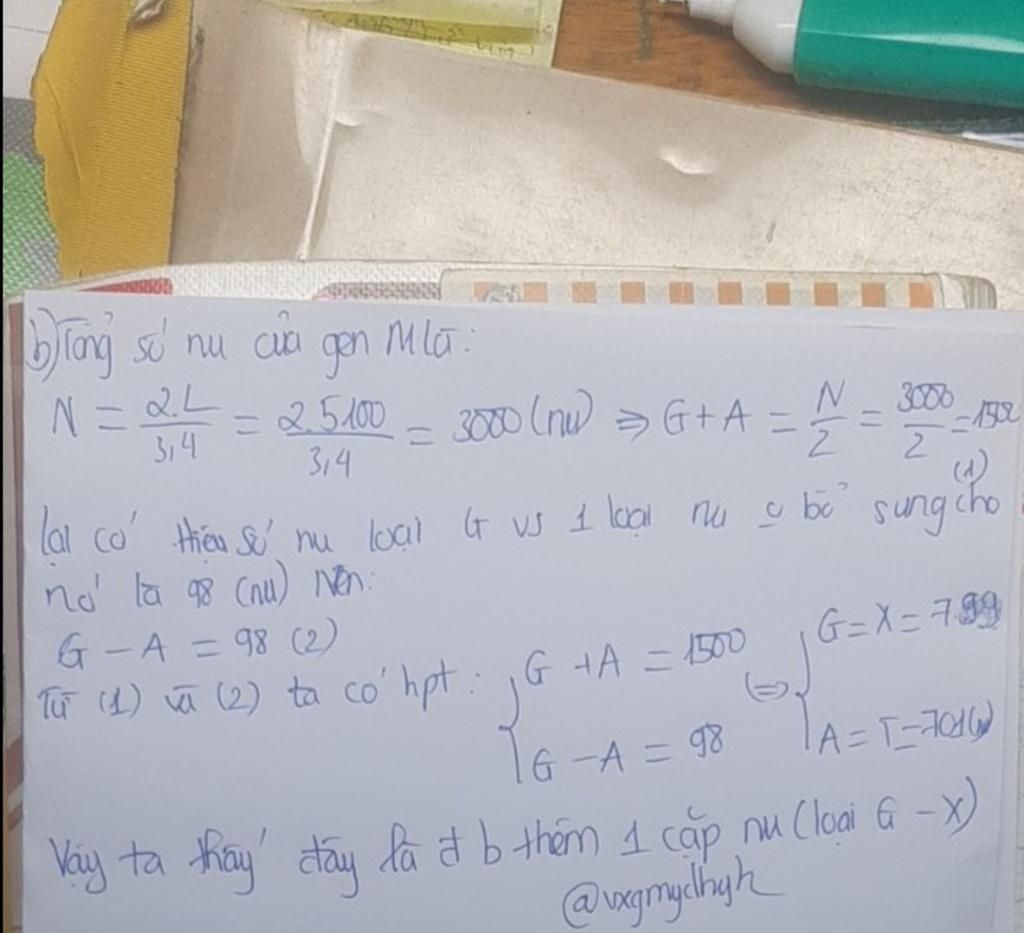 b) Tổng số nu của gen M là:
N = 2.L/3,4 = 2.5100/3,4 = 3000 (nu) => G + A = N/2 = 3000/2 = 1500 (1)
lại có hiệu số nu loại G vs 1 loại nu o bổ sung cho
nó là 98 (nu) Nên:
G - A = 98 (2)
Từ (1) và (2) ta có hpt: { G + A = 1500 <=> { G = X = 799
G - A = 98 A = T = 701 (nu)
Vậy ta thấy đây là đb thêm 1 cặp nu (loại G - X)
@vxgmydhyh